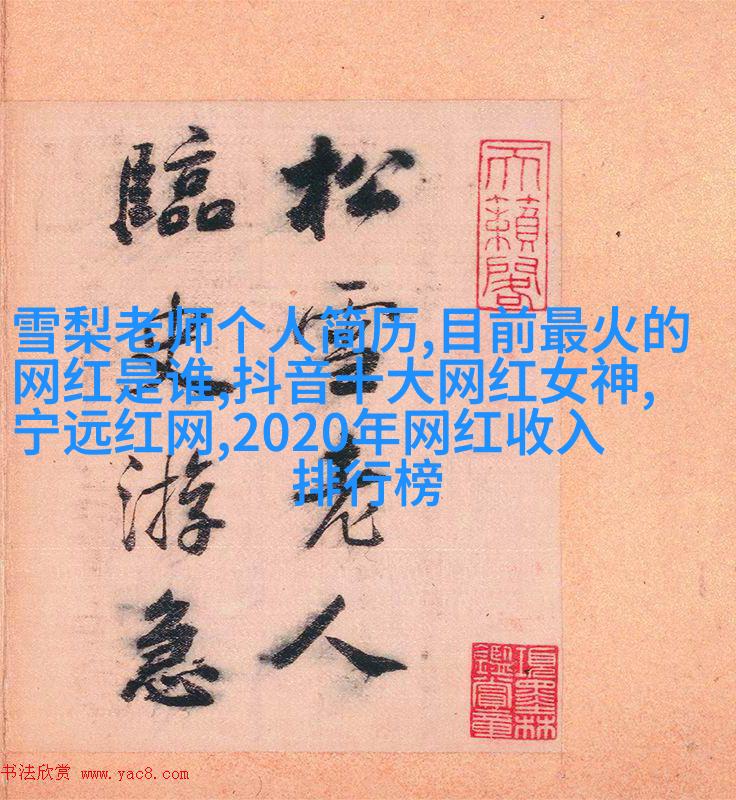 松雪老人
臨史游急
天籟閣
項墨林
鑑賞章
雪梨老师个人简历,目前最火的
网红是谁,抖音十大网红女神,
宁远红网,2020年网红收入
排行榜
书法欣赏 www.yac8.com